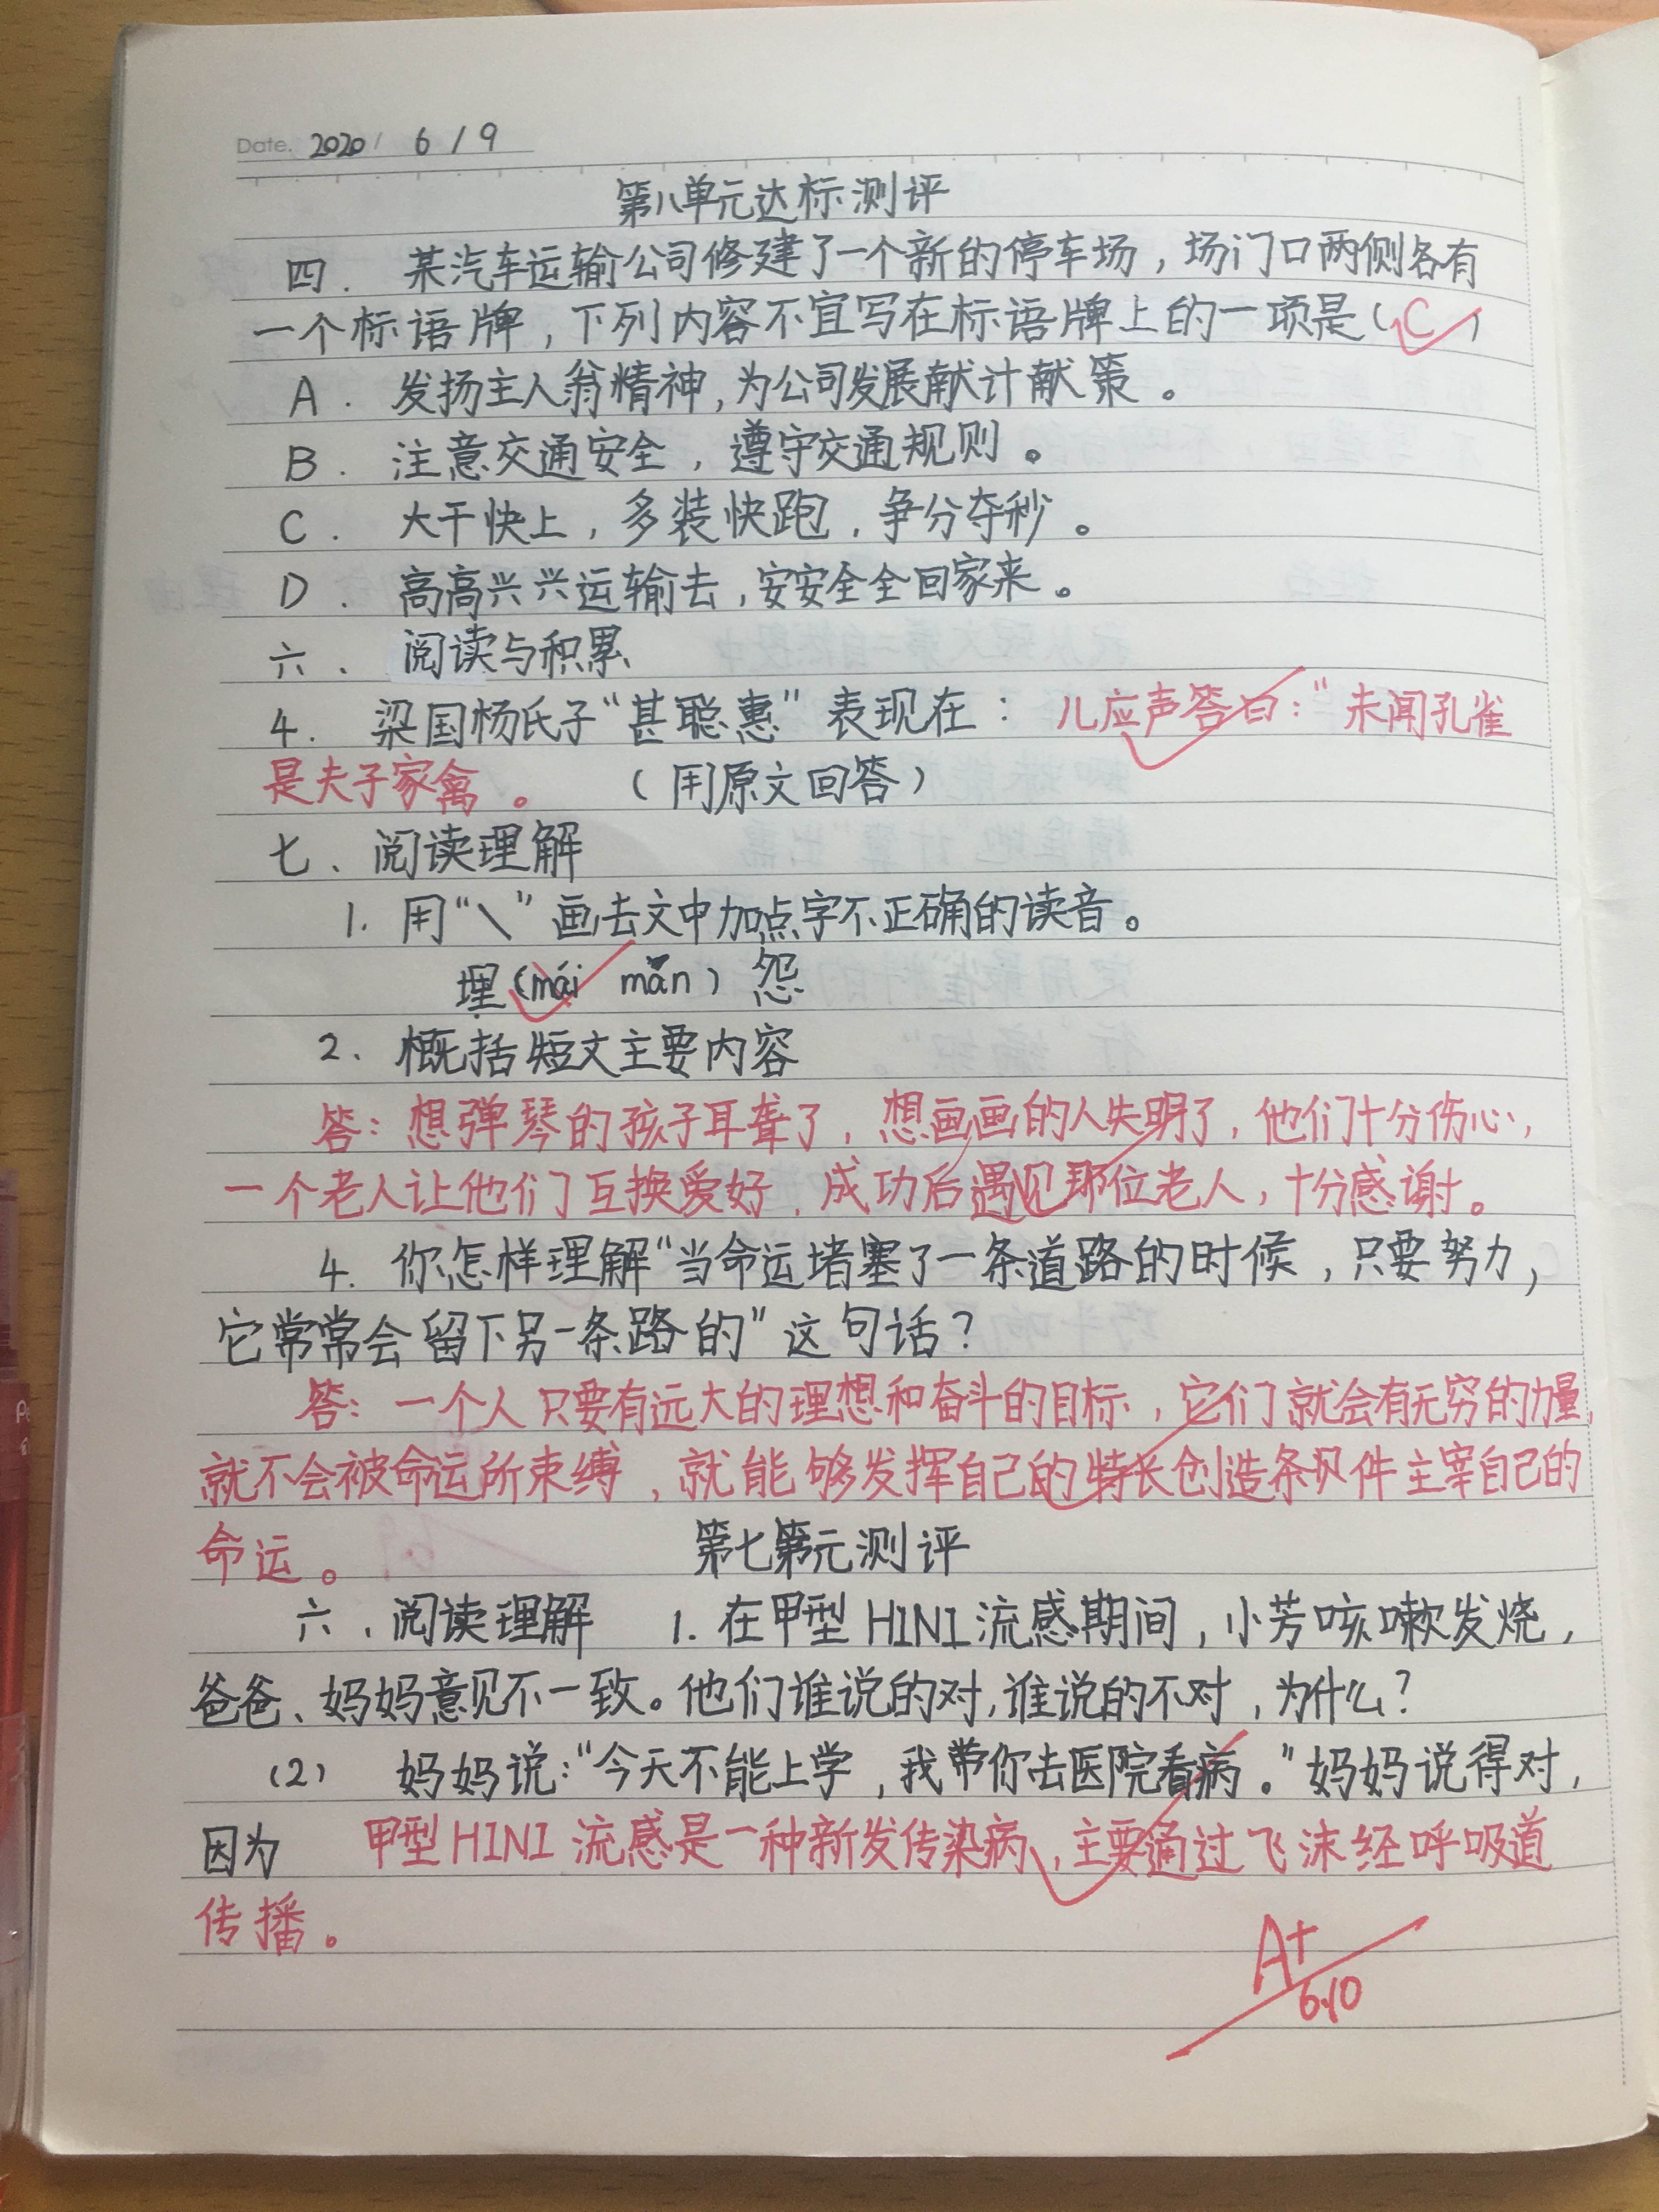 Date. 2020 / 6 / 9
第八单元达标测评
四． 某汽车运输公司修建了一个新的停车场，场门口两侧各有
一个标语牌，下列内容不宜写在标语牌上的一项是（C）
A． 发扬主人翁精神，为公司发展献计献策。
B． 注意交通安全，遵守交通规则。
C． 大干快上，多装快跑，争分夺秒。
D． 高高兴兴运输去，安安全全回家来。
六、阅读与积累
4． 梁国杨氏子“甚聪惠”表现在：儿应声答曰：“未闻孔雀
是夫子家禽。 （用原文回答）
七、阅读理解
1. 用“\”画去文中加点字不正确的读音。
埋（mái mán）怨
2. 概括短文主要内容
答：想弹琴的孩子耳聋了，想画画的人失明了，他们十分伤心，
一个老人让他们互换爱好，成功后遇见那位老人，十分感谢。
4. 你怎样理解“当命运堵塞了一条道路的时候，只要努力，
它常常会留下另一条路的”这句话？
答：一个人只要有远大的理想和奋斗的目标，它们就会有无穷的力量，
就不会被命运所束缚，就能够发挥自己的特长创造条件主宰自己的
命运。 第七第元测评
六、阅读理解 1. 在甲型H1N1流感期间，小芳咳嗽发烧，
爸爸、妈妈意见不一致。他们谁说的对，谁说的不对，为什么？
（2） 妈妈说：“今天不能上学，我带你去医院看病。”妈妈说得对，
因为 甲型H1N1流感是一种新发传染病，主要通过飞沫经呼吸道
传播。
A+
6.10